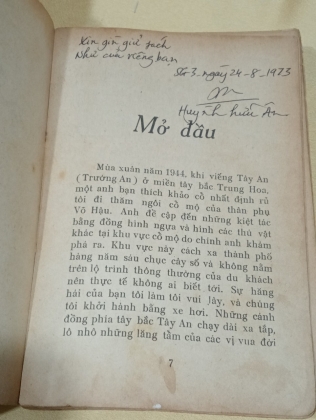 Xin gìn giữ sách
Như của riêng bạn
Str 3. ngày 24-8-1973
Huỳnh hữu Ân
Mở đầu
Mùa xuân năm 1944, khi viếng Tây An
(Trường An) ở miền tây bắc Trung Hoa,
một anh bạn thích khảo cổ nhất định rủ
tôi đi thăm ngôi cổ mộ của thân phụ
Võ Hậu. Anh đề cập đến những kiệt tác
bằng đồng hình ngựa và hình các thú vật
khác tại khu vực cổ mộ do chính anh khám
phá ra. Khu vực này cách xa thành phố
hàng năm sáu chục cây số và không nằm
trên lộ trình thông thường của du khách
nên thực tế không ai biết tới. Sự hăng
hái của bạn tôi làm tôi vui lây, và chúng
tôi khởi hành bằng xe hơi. Những cánh
đồng phía tây bắc Tây An chạy dài xa tắp,
lô nhô những lăng tẩm của các vị vua đời
7